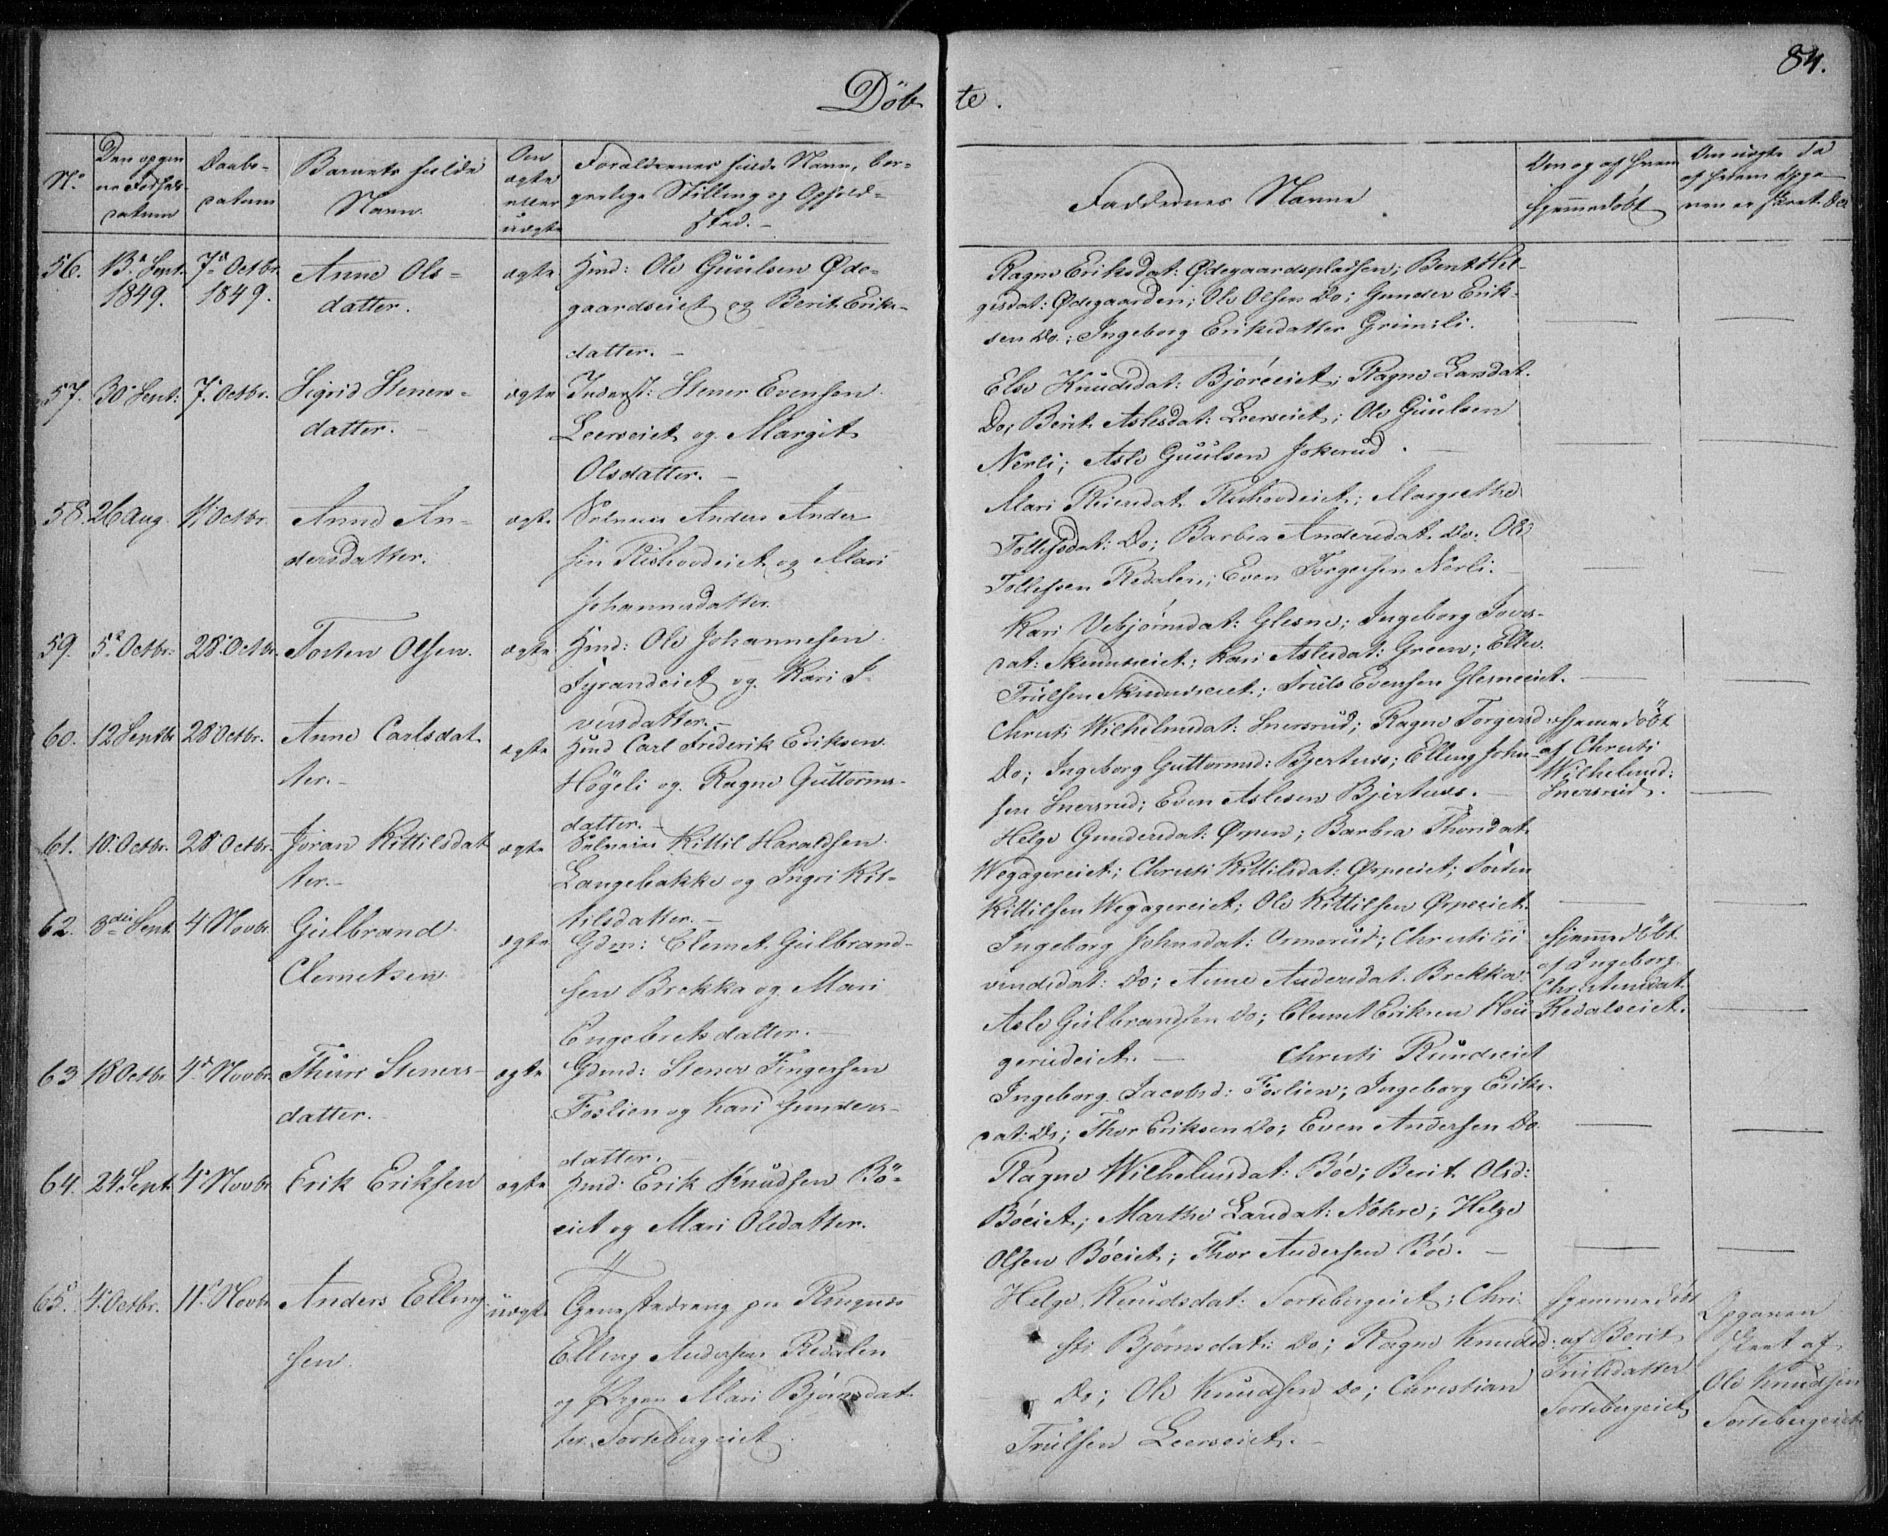 84.
Döbte.
No
Den opgivne Fødselsdatum
Daabsdatum
Barnets fulde Navn.
Om ægte eller uægte
Forældrenes fulde Navn, borgerlige Stilling og Opholdsted.
Faddernes Navne
Om og af hvem hjemmedöbt
Om uægte da af hvem Opgaven er skeet
56.
13de Sept. 1849.
7de Octbr. 1849.
Anne Olsdatter.
ægte
Hmd: Ole Guulsen Ødegaardseiet og Berit Eriksdatter.
Ragne Eriksdat: Ødegaardspladsen; Berit Helgesdat: Ødegaarden; Ole Olsen Do; Gunder Eriksen Do; Ingeborg Eriksdatter Grimeli.
57.
30 Sept:
7. Octbr.
Sigrid Stenersdatter.
ægte
Inderst: Stener Evensen Leerseiet og Margit Olsdatter.
Else Knudsdat: Björeeiet; Ragne Larsdat. Do; Berit Aslesdat: Leerseiet; Ole Guulsen Nerli; Asle Guulsen Jokerud.
58.
26 Aug.
Octbr.
Anne Andersdatter.
ægte
Anders Andersen Rishovdeiet og Mari Johannesdatter.
Mari Rishovdeiet; Margrethe Tollefsdat: Do; Barbra Andersdat. Do: Ole Tollefsen Redalen; Even Torgersen Nerli.
59.
5te Octbr:
28 Octbr.
Tosten Olsen.
ægte
Hmd: Ole Johannesen og Kari Iversdatter.
Kari Vebjørnsdat: Glesne; Ingeborg Iversdat: Skinneseiet; Kari Aslesdat: Green; Ellev Trulsen Skinneseiet; Truls Evensen Glesneeiet.
60.
12 Septbr
28 Octbr.
Anne Carlsdatter.
ægte
Hmd Carl Frederik Eriksen Högeli og Ragne Guttormsdatter.
Christi Wilhelmsdat: Snersrud; Ragne Torgersd: Do; Ingeborg Guttormsd: Bjertnes; Elling Johnsen Snersrud; Even Aslesen Bjertnes.
Hjemmedöbt af Christi Wilhelmsd: Snersrud.
61.
10. Octbr.
28 Octbr.
Jöran Kittilsdatter.
ægte
Kittil Haraldsen Langebakke og Ingri Kittilsdatter.
Helge Gundersdat: Ørpen; Barbra Thorsdat. Wegagereiet; Christi Kittilsdat: Ørpeeiet; Tosten Kittilsen Wegagereiet; Ole Kittilsen Ørpeeiet.
62.
3die Sept.
4 Novbr.
Gulbrand Clemetsen
ægte
Gdm: Clemet Gulbrandsen Brekka og Mari Engebretsdatter.
Ingeborg Johnsdat: Ormerud; Christi Eivendsdat: Do; Anne Andersdat. Brekka; Asle Gulbrandsen Do; Clemet Eriksen Haugerudeiet.
Hjemmedöbt af Ingeborg Christensdat. Redalseiet.
63
18 Octbr
4de Novbr.
Thuri Stenersdatter.
ægte
Gdmd: Stener Fingersen Foslien og Kari Gundersdatter.
Christi Rundseiet Ingeborg Jacobsd: Foslien; Ingeborg Eriksdat: Do; Thor Eriksen Do; Even Andersen Do.
64.
24 Sept.
4de Novbr
Erik Eriksen
ægte
Hmd: Erik Knudsen Böeiet og Mari Olsdatter.
Ragne Wilhelmsdat: Böe; Berit Olsd: Böeiet; Marthe Larsdat: Nöhre; Helge Olsen Böeiet; Thor Andersen Böe.
65.
4. Octbr.
11te Novbr
Anders Ellingsen
uægte
Tjenestedreng paa Ringnes Elling Andersen Redalen og Pigen Mari Björnsdatter Tortebergeiet
Helge Knudsdat: Tortebergeiet; Christi Björnsdat: Do; Ragne Knudsd: Do; Ole Knudsen Do; Christian Trulsen Leerseiet.
Hjemmedöbt af Berit Trulsdatter Tortebergeiet
Opgaven skeet af Ole Knudsen Tortebergeiet